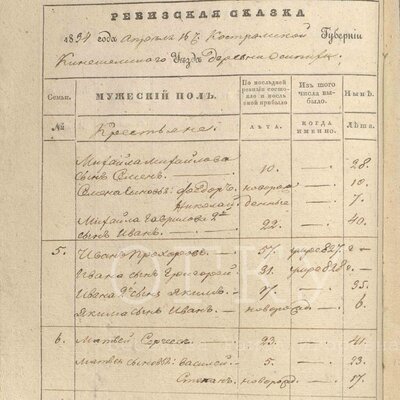 РЕВИЗСКАЯ СКАЗКА
1834 года апреля 16 д. Костромской Губерніи
Кинешемского Уѣзда Деревни
Семьи.
МУЖЕСКІЙ ПОЛЪ.
По послѣдней ревизіи состояло и послѣ оной прибыло
Изъ того числа выбыло.
Нынѣ.
№
ЛѢТА.
КОГДА ИМЕННО.
Лѣта.
Крестьяне.
Михайла Михайлова
сынъ Семенъ 10. — 28
Семена сыновья: Федоръ новорож — 10
Николай денные — 7
Михайла Гаврилова 2й
сынъ Иванъ 22. — 40
5. Иванъ Прохоровъ 57. умре 827 г —
Ивана сынъ Григорей 31. умре 828 г. —
Ивана 2й сынъ Якимъ 17. — 35
Якима сынъ Иванъ новорожд — 6
6. Матвей Сергеевъ 23. — 41
Матвея сыновья: Василей 5. — 23
Степанъ новорожд. — 17